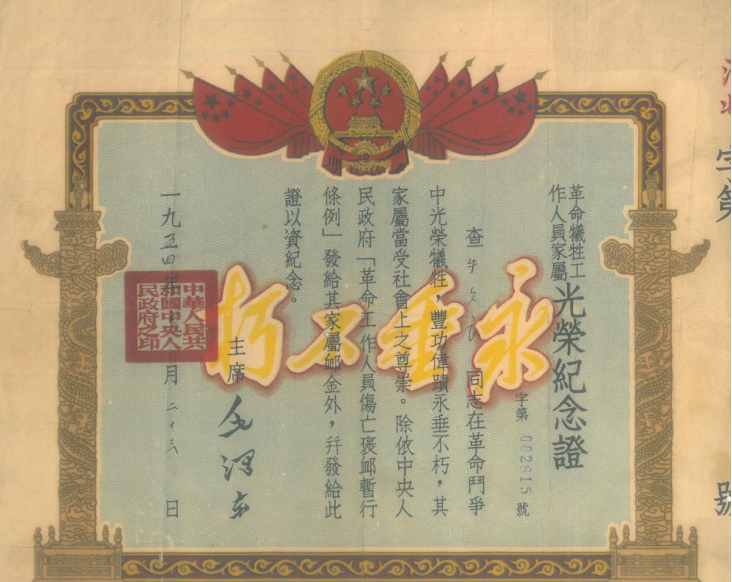 革命犧牲工作人員家屬光榮紀念證
字第 002815 號
查 同志在革命鬥爭
中光榮犧牲，豐功偉蹟永垂不朽，其
家屬當受社會上之尊崇。除依中央人
民政府「革命工作人員傷亡褒卹暫行
條例」發給其家屬卹金外，并發給此
證以資紀念。
主席 毛澤東
一九五四年 月 二十三 日
永垂不朽
中華人民共和國中央人民政府之印
字第
號